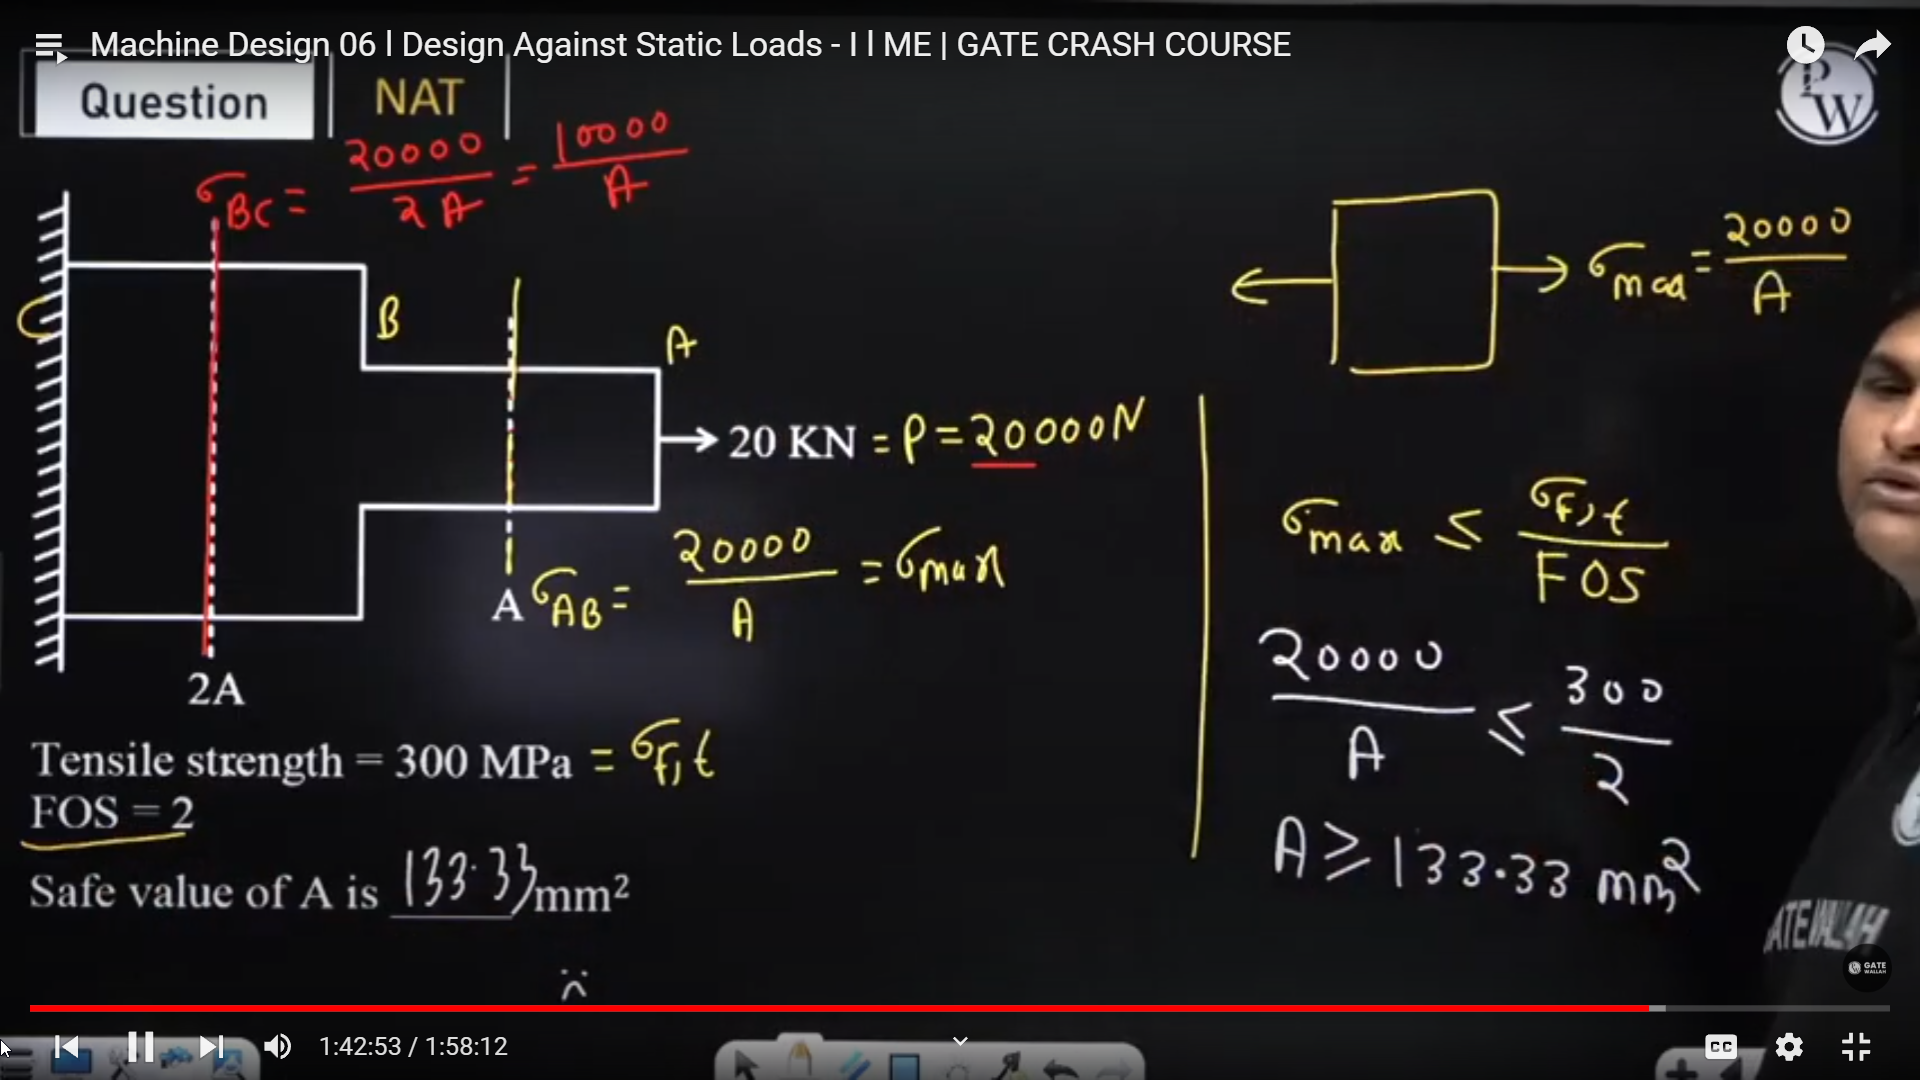 Machine Design 06 l Design Against Static Loads - I l ME | GATE CRASH COURSE
Question
NAT
PW
σBC = 20000/2A = 10000/A
B
A
20 KN = P = 20000N
A
σAB = 20000/A = σmax
2A
Tensile strength = 300 MPa = σF,t
FOS = 2
Safe value of A is 133.33 mm²
C
σmax = 20000/A
σmax ≤ σF,t/FOS
20000/A ≤ 300/2
A ≥ 133.33 mm²
GATE WALLAH
GATE WALLAH
1:42:53 / 1:58:12
CC